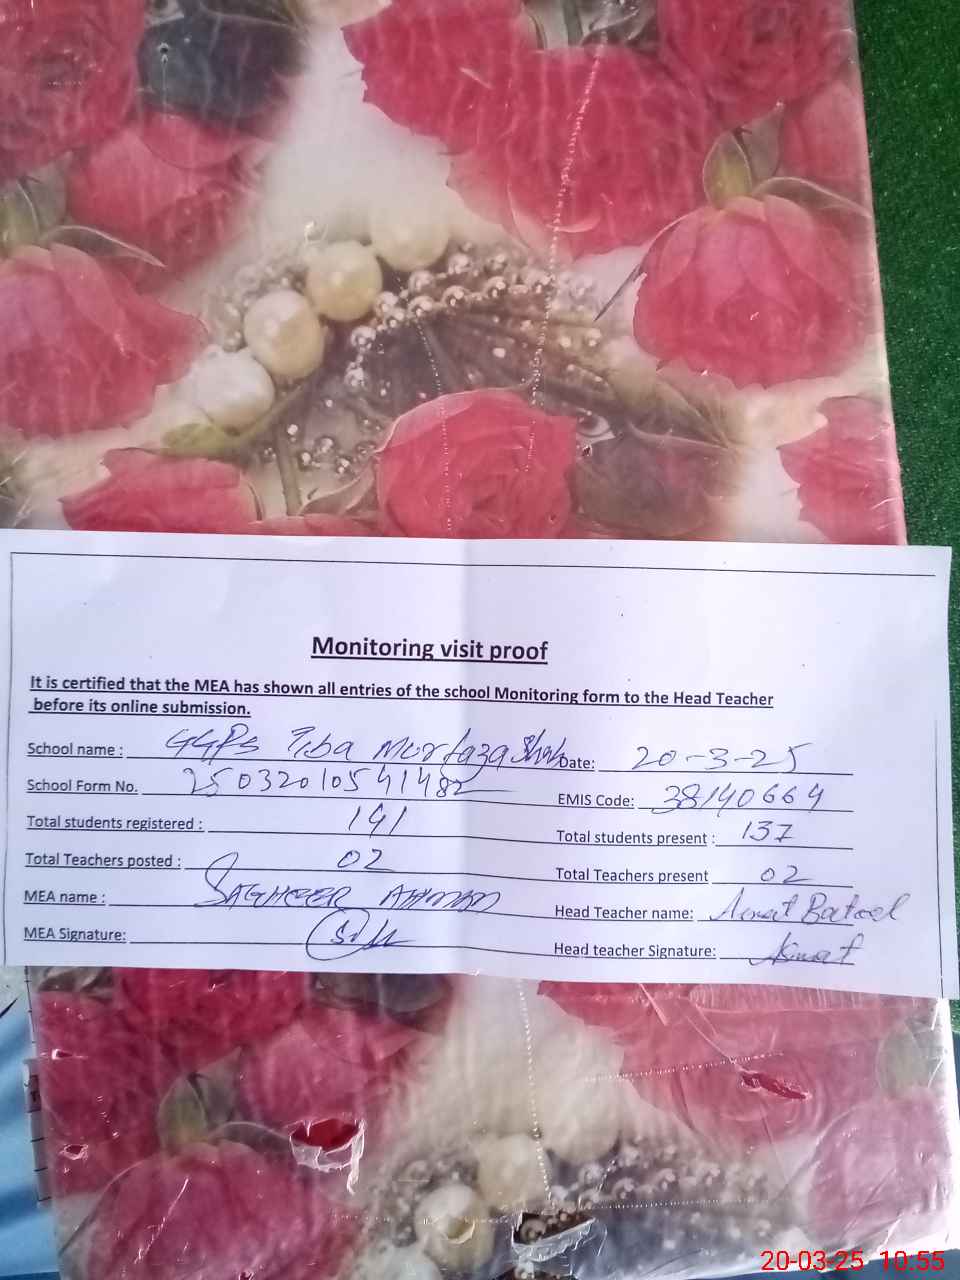 Monitoring visit proof
It is certified that the MEA has shown all entries of the school Monitoring form to the Head Teacher
before its online submission.
School name : GGPS Tiba Murtaza Shah Date: 20-3-25
School Form No. 25032010541482 EMIS Code: 38140664
Total students registered : 141 Total students present : 137
Total Teachers posted : 02 Total Teachers present 02
MEA name : SAGHEER AHMAD Head Teacher name: Asmat Batool
MEA Signature: Head teacher Signature: Asmat
20-03-25 10:55